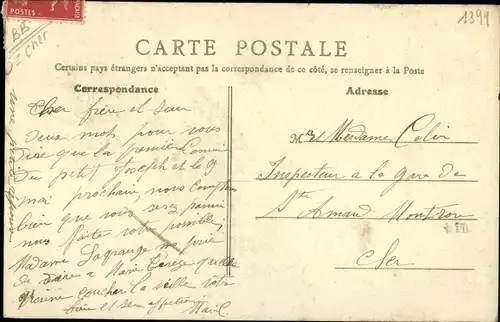 POSTES
BB
Cher
1399
CARTE POSTALE
Certains pays étrangers n'acceptant pas la correspondance de ce côté, se renseigner à la Poste
Correspondance
Adresse
Cher frère et sœur
deux mots pour vous
dire que la première Commun
du petit Joseph et le 9
mai prochain, nous comptons
bien que vous serez parmi
nous faite votre possible,
Madame Lagrange me prie
de dire a Marie Téreze qu'elle
vienne coucher la veille votre
frère et sœur affection
Mr et Madame Colin
Inspecteur a la gare de
St Amand Montron
Cher